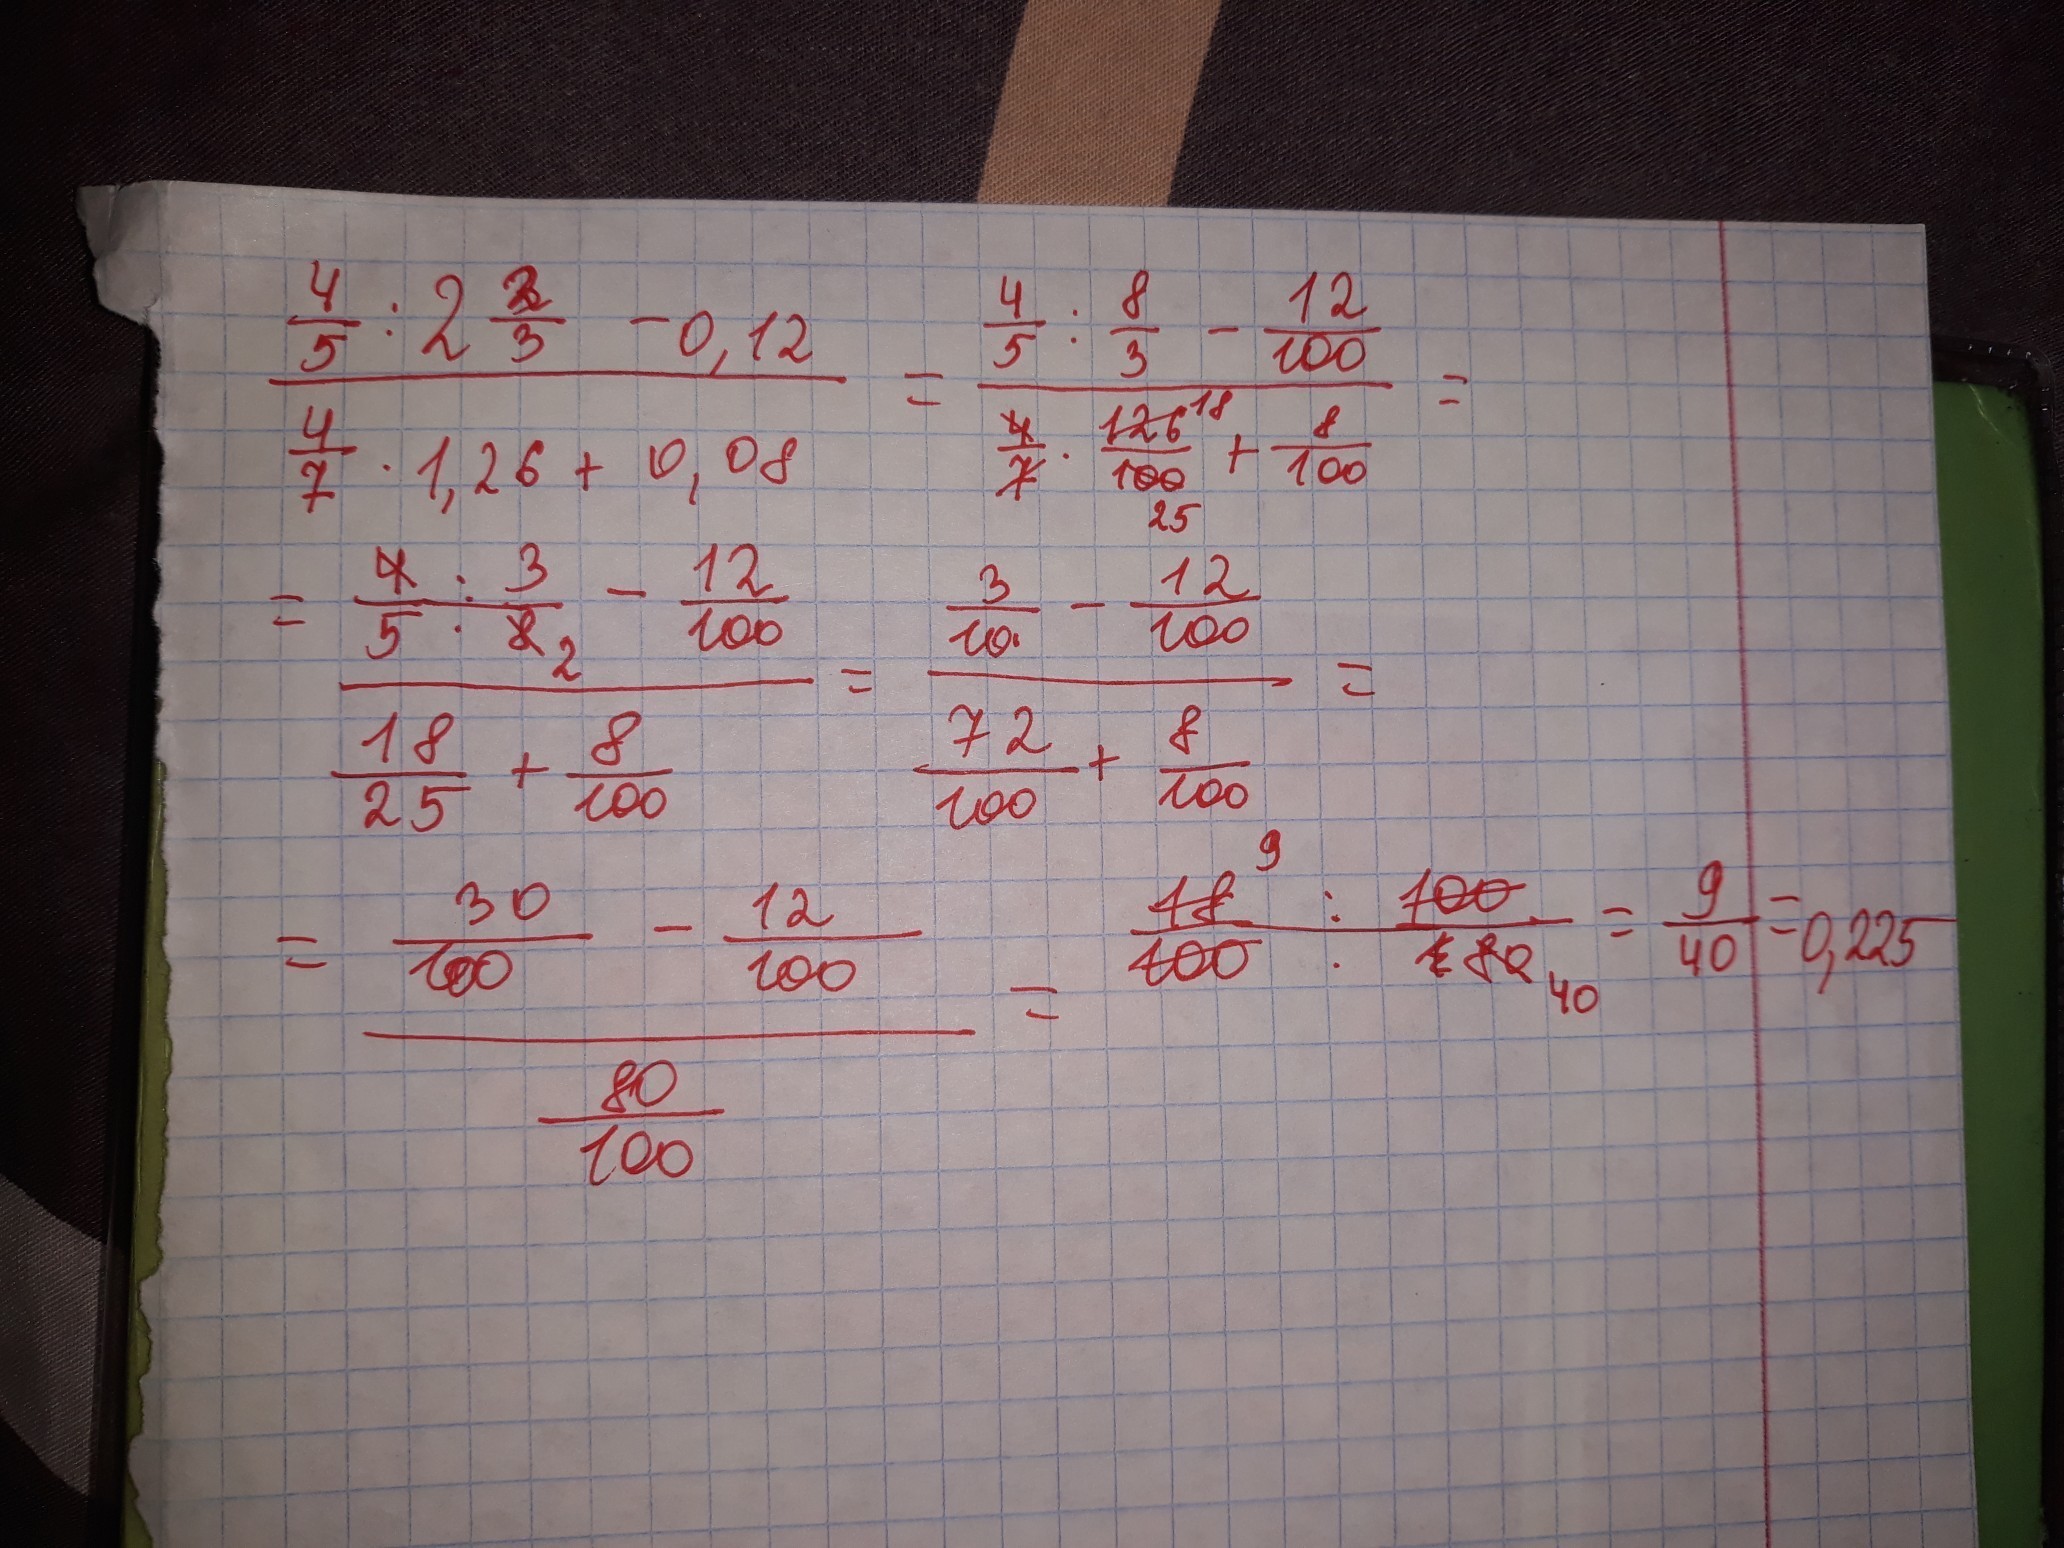 4/5 : 2 2/3 - 0,12 / 4/7 · 1,26 + 0,08 = 4/5 : 8/3 - 12/100 / 4/7 · 126 18/100 25 + 8/100 =
= 4 : 3/5 · 8 2 - 12/100 / 18/25 + 8/100 = 3/10 - 12/100 / 72/100 + 8/100 =
= 30/100 - 12/100 / 80/100 = 18 9 : 100/100 · 80 40 = 9/40 = 0,225